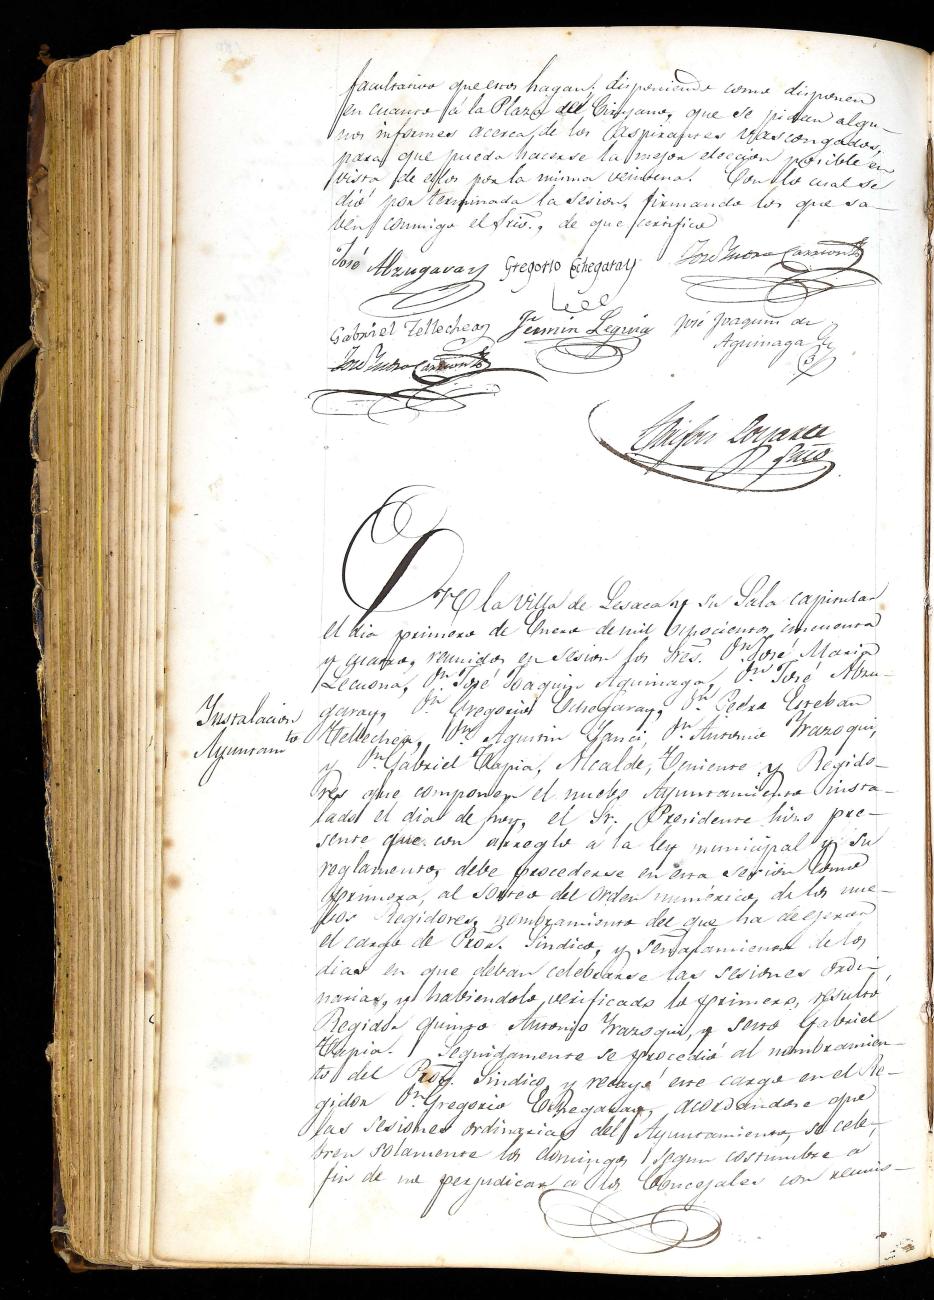 facultativo que esos hagan; disponiendo como disponen
en cuanto á la Plaza del Cirujano, que se pidan algu-
nos informes acerca de los aspirantes vascongados,
para que pueda hacerse la mejor eleccion posible en
vista de ellos por la misma veintena. Con lo cual se
dió por terminada la sesion, firmando los que sa-
ben conmigo el Srio., de que certifico
José Abzugaray Gregorio Echegaray
Gabriel Tellechea Fermin Leguia José Joaquin de
Aguinaga
Srio
En la Villa de Lesaca y su Sala capitular
el dia primero de Enero de mil ochocientos cincuenta
y cuatro, reunidos en sesion los Sres. Dn. José Maria
Lecuona, Dn. José Joaquin Aguinaga, Dn. José Abzu-
garay, Dn. Gregorio Echegaray, Dn. Pedro Esteban
Instalacion
Ayuntamto
Tellechea, Dn. Agustin Yanci, Dn. Antonio Yrazoqui,
y Dn. Gabriel Tapia, Alcalde, Teniente y Regido-
res que componen el nuebo Ayuntamiento insta-
lado el dia de hoy, el Sr. Presidente hizo pre-
sente que con arreglo á la ley municipal y su
reglamento, debe procederse en esta sesion como
primera, al sorteo del orden numérico de los nue-
bos Regidores, nombramiento del que ha de ejercer
el cargo de Pror. Sindico, y señalamiento de los
dias en que deban celebrarse las sesiones ordi-
narias, y habiendolo verificado lo primero, resultó
Regidor quinto Antonio Yrazoqui, y sesto Gabriel
Tapia. Seguidamente se procedió al nombramien-
to del Pror. Sindico, y recayó este cargo en el Re-
gidor Dn. Gregorio Echegaray, acordandose que
las sesiones ordinarias del Ayuntamiento, se cele-
bren solamente los domingos segun costumbre á
fin de no perjudicar á los Concejales con reunio-